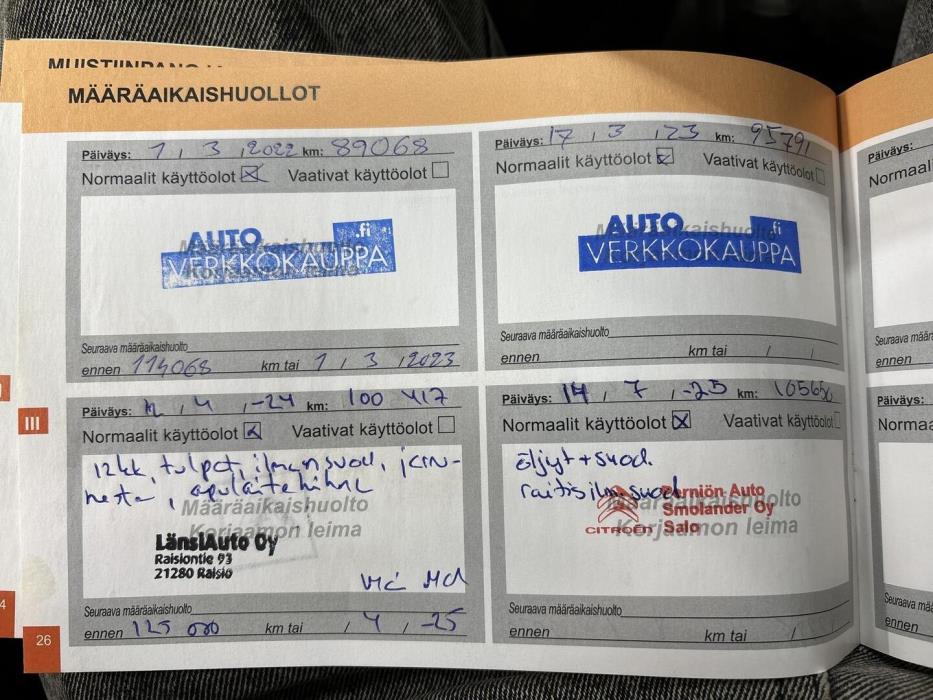 MUISTIINPANO
MÄÄRÄAIKAISHUOLLOT
Päiväys: 1 / 3 / 2022 km: 89068
Normaalit käyttöolot ☒ Vaativat käyttöolot ☐
AUTO .fi
VERKKOKAUPPA
Määräaikaishuolto
Korjaamon leima
Seuraava määräaikaishuolto
ennen 114068 km tai 1 / 3 / 2023
Päiväys: 17 / 3 / 23 km: 95791
Normaalit käyttöolot ☒ Vaativat käyttöolot ☐
AUTO .fi
VERKKOKAUPPA
Määräaikaishuolto
Seuraava määräaikaishuolto
ennen km tai / /
III
Päiväys: 12 / 4 / -24 km: 100 417
Normaalit käyttöolot ☒ Vaativat käyttöolot ☐
12kk, tulpat, ilmansuod, jarru-
neste, apulaitehihna
Määräaikaishuolto
Korjaamon leima
LänsiAuto Oy
Raisiontie 93
21280 Raisio
Seuraava määräaikaishuolto
ennen 125 000 km tai / 4 / -25
Päiväys: 14 / 7 / -25 km: 105650
Normaalit käyttöolot ☒ Vaativat käyttöolot ☐
öljyt + suod.
raitisilm. suod.
Määräaikaishuolto
Korjaamon leima
Perniön Auto
Smolander Oy
CITROËN Salo
Seuraava määräaikaishuolto
ennen km tai / /
26
Päiväys:
ennen
Päiväys:
ennen